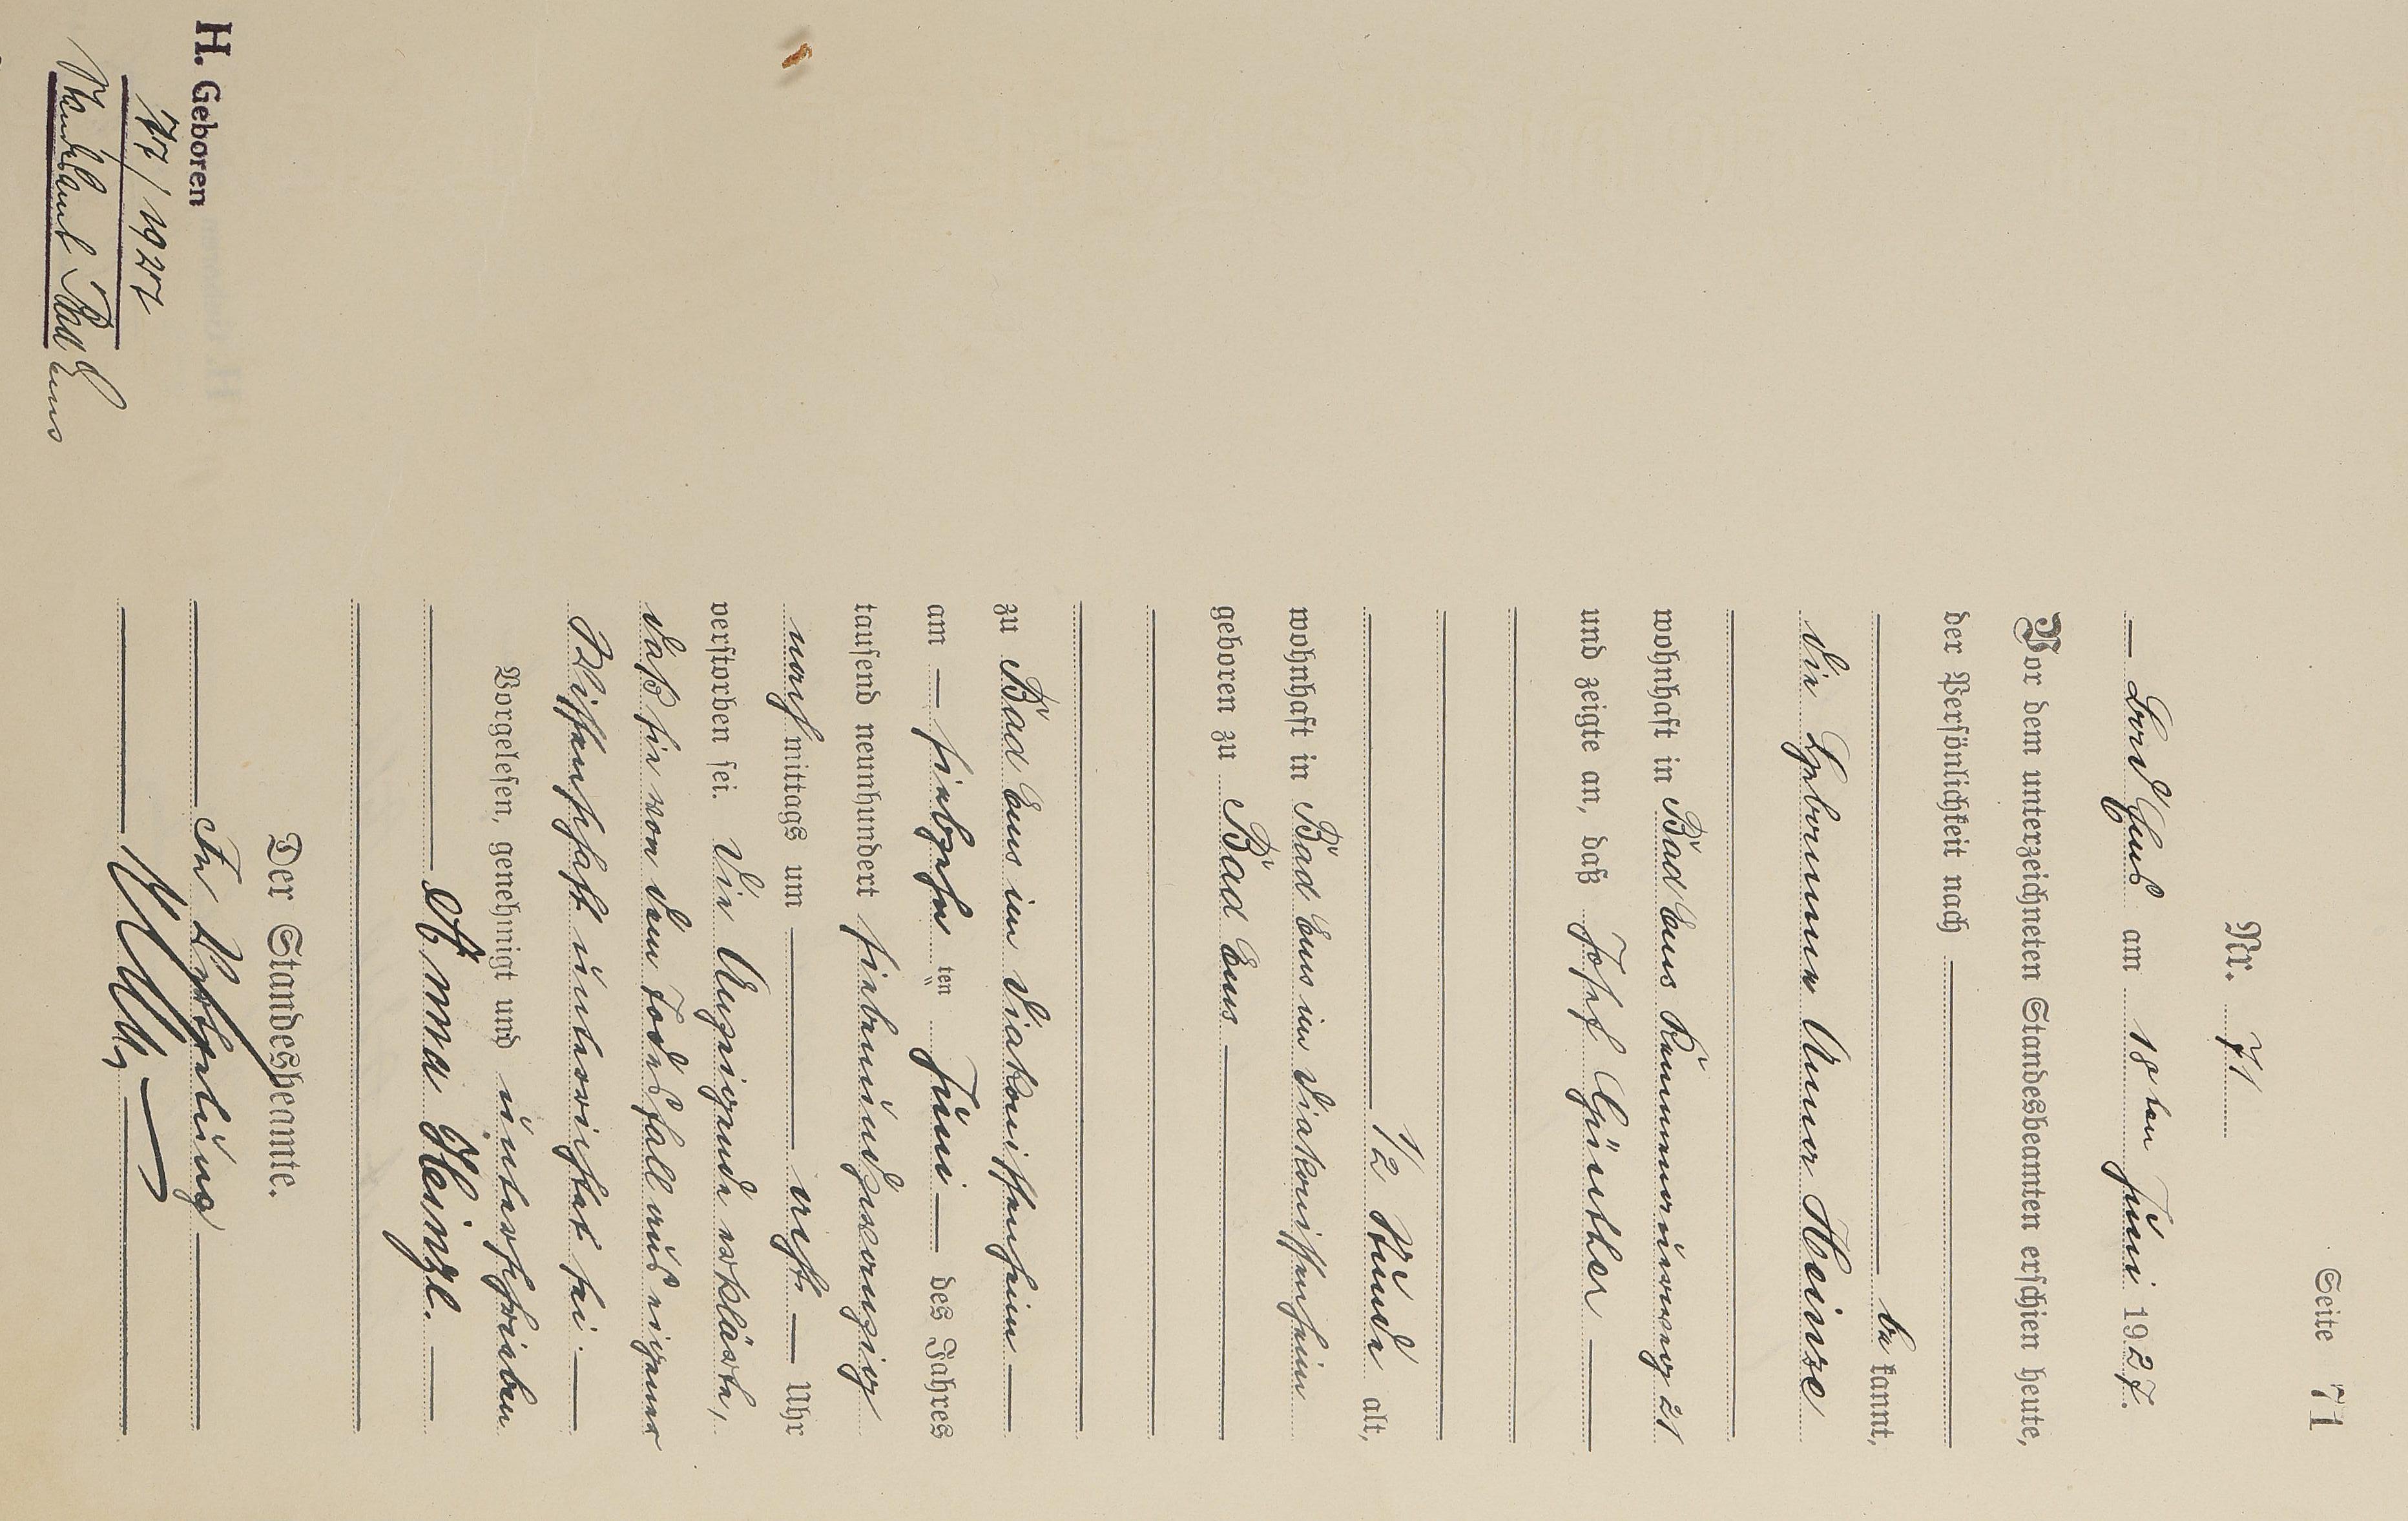 Seite 71
Nr. 71
Bad Ems am 18ten Juni 1927.
Vor dem unterzeichneten Standesbeamten erschien heute,
der Persönlichkeit nach
bekannt,
die Hebamme Anna Heinze
wohnhaft in Bad Ems
und zeigte an, daß Josef Günther
1/2 Stunde alt,
wohnhaft in Bad Ems im Diakonissenheim
geboren zu Bad Ems
zu Bad Ems im Diakonissenheim
am siebzehn ten Juni des Jahres
tausend neunhundert siebenundzwanzig
nachmittags um acht Uhr
verstorben sei. Die Anzeigende erklärte,
daß sie von dem Todesfall aus eigener
Wissenschaft unterrichtet sei.
Vorgelesen, genehmigt und unterschrieben
Anna Heinze.
Der Standesbeamte.
In Vertretung
H. Geboren
77/1927
Standesamt Bad Ems